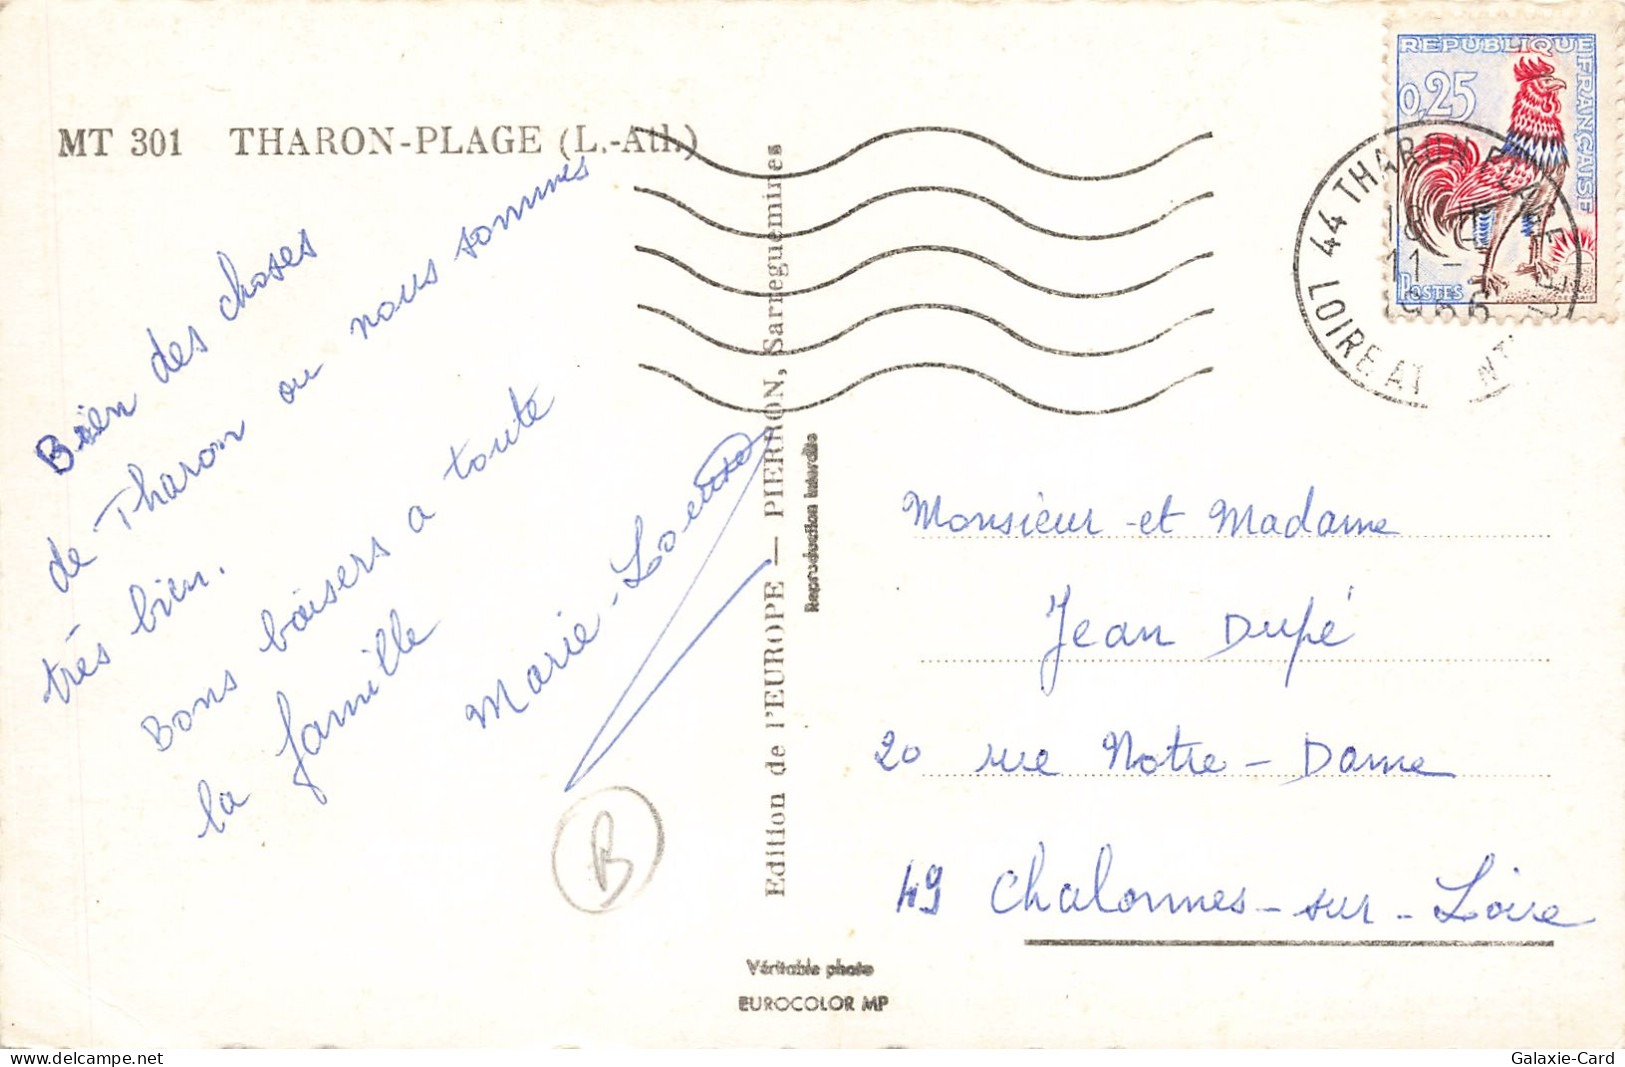 MT 301 THARON-PLAGE (L.-Atl.)
Bien des choses
de Tharon ou nous sommes
très bien.
Bons baisers a toute
la famille
Marie-Loente
Edition de l'EUROPE — PIERRON, Sarreguemines
Reproduction interdite
REPUBLIQUE
FRANÇAISE
0,25
POSTES
44 THARON PLAGE
11 -
1966
LOIRE AT NTIQUE
Monsieur et Madame
Jean Dupé
20 rue Notre-Dame
49 Chalonnes-sur-Loire
B
Véritable photo
EUROCOLOR MP
delcampe.net
Galaxie-Card